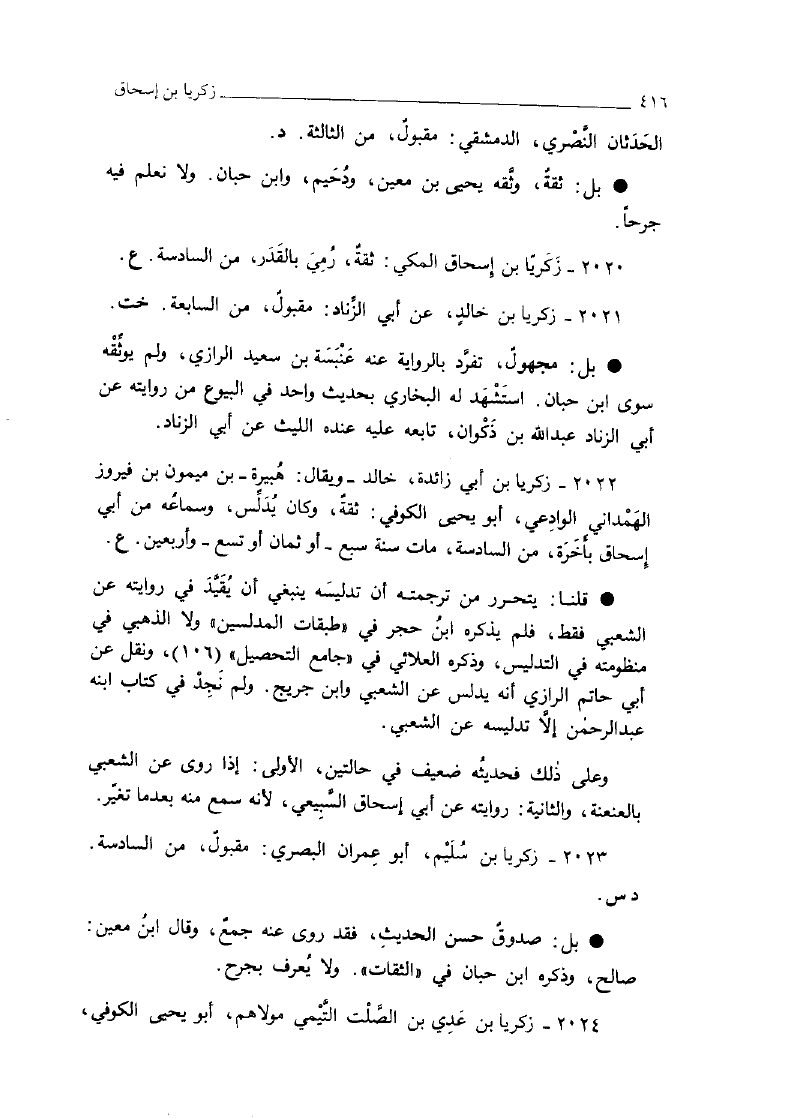 ٤١٦ زكريا بن إسحاق
الحَدَثان النَّصْري، الدمشقي: مقبولٌ، من الثالثة. د.
● بل: ثقةٌ، وثَّقه يحيى بن معين، ودُحَيم، وابن حبان. ولا نعلم فيه
جرحاً.
٢٠٢٠ ـ زَكَريّا بن إسحاق المكي: ثقةٌ، رُمِيَ بالقَدَر، من السادسة. ع.
٢٠٢١ ـ زكريا بن خالدٍ، عن أبي الزِّناد: مقبولٌ، من السابعة. خت.
● بل: مجهولٌ، تفرَّد بالرواية عنه عَنْبَسَة بن سعيد الرازي، ولم يوثِّقْه
سوى ابن حبان. استَشْهَد له البخاري بحديث واحد في البيوع من روايته عن
أبي الزناد عبدالله بن ذَكْوان، تابعه عليه عنده الليث عن أبي الزناد.
٢٠٢٢ ـ زكريا بن أبي زائدة، خالد ـ ويقال: هُبيرة ـ بن ميمون بن فيروز
الهَمْداني الوادِعي، أبو يحيى الكوفي: ثقةٌ، وكان يُدَلِّس، وسماعُه من أبي
إسحاق بأَخَرَة، من السادسة، مات سنة سبع ـ أو ثمان أو تسع ـ وأربعين. ع.
● قلنا: يتحرر من ترجمته أن تدليسَه ينبغي أن يُقَيَّدَ في روايته عن
الشعبي فقط، فلم يذكره ابنُ حجر في «طبقات المدلسين» ولا الذهبي في
منظومته في التدليس، وذكره العلائي في «جامع التحصيل» (١٠٦)، ونقل عن
أبي حاتم الرازي أنه يدلس عن الشعبي وابن جريج. ولم نَجِدْ في كتاب ابنه
عبدالرحمٰن إلَّا تدليسه عن الشعبي.
وعلى ذٰلك فحديثُه ضعيف في حالتين، الأولى: إذا روى عن الشعبي
بالعنعنة، والثانية: روايته عن أبي إسحاق السَّبِيعي، لأنه سمع منه بعدما تغيّر.
٢٠٢٣ ـ زكريا بن سُلَيْم، أبو عِمران البصري: مقبولٌ، من السادسة.
د س.
● بل: صدوقٌ حسن الحديثِ، فقد روى عنه جمعٌ، وقال ابنُ معين:
صالح، وذكره ابن حبان في «الثقات». ولا يُعرف بجرح.
٢٠٢٤ ـ زكريا بن عَدِي بن الصَّلْت التَّيْمي مولاهم، أبو يحيى الكوفي،